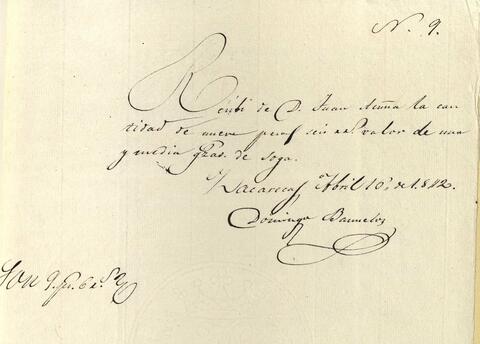 N. 9.
Recibi de D. Juan Acuña la can
tidad de nueve pesos seis rs. valor de una
y media gzas. de soga.
Zacatecas Abril 10, de 1842.
Domingo Bañuelos
Son 9. ps. 6 rs.